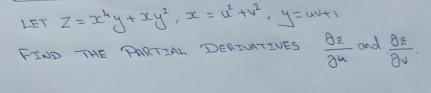 LET Z = x⁴y + xy², x = u² + v², y = uv+1
FIND THE PARTIAL DERIVATIVES ∂z/∂u and ∂z/∂v.